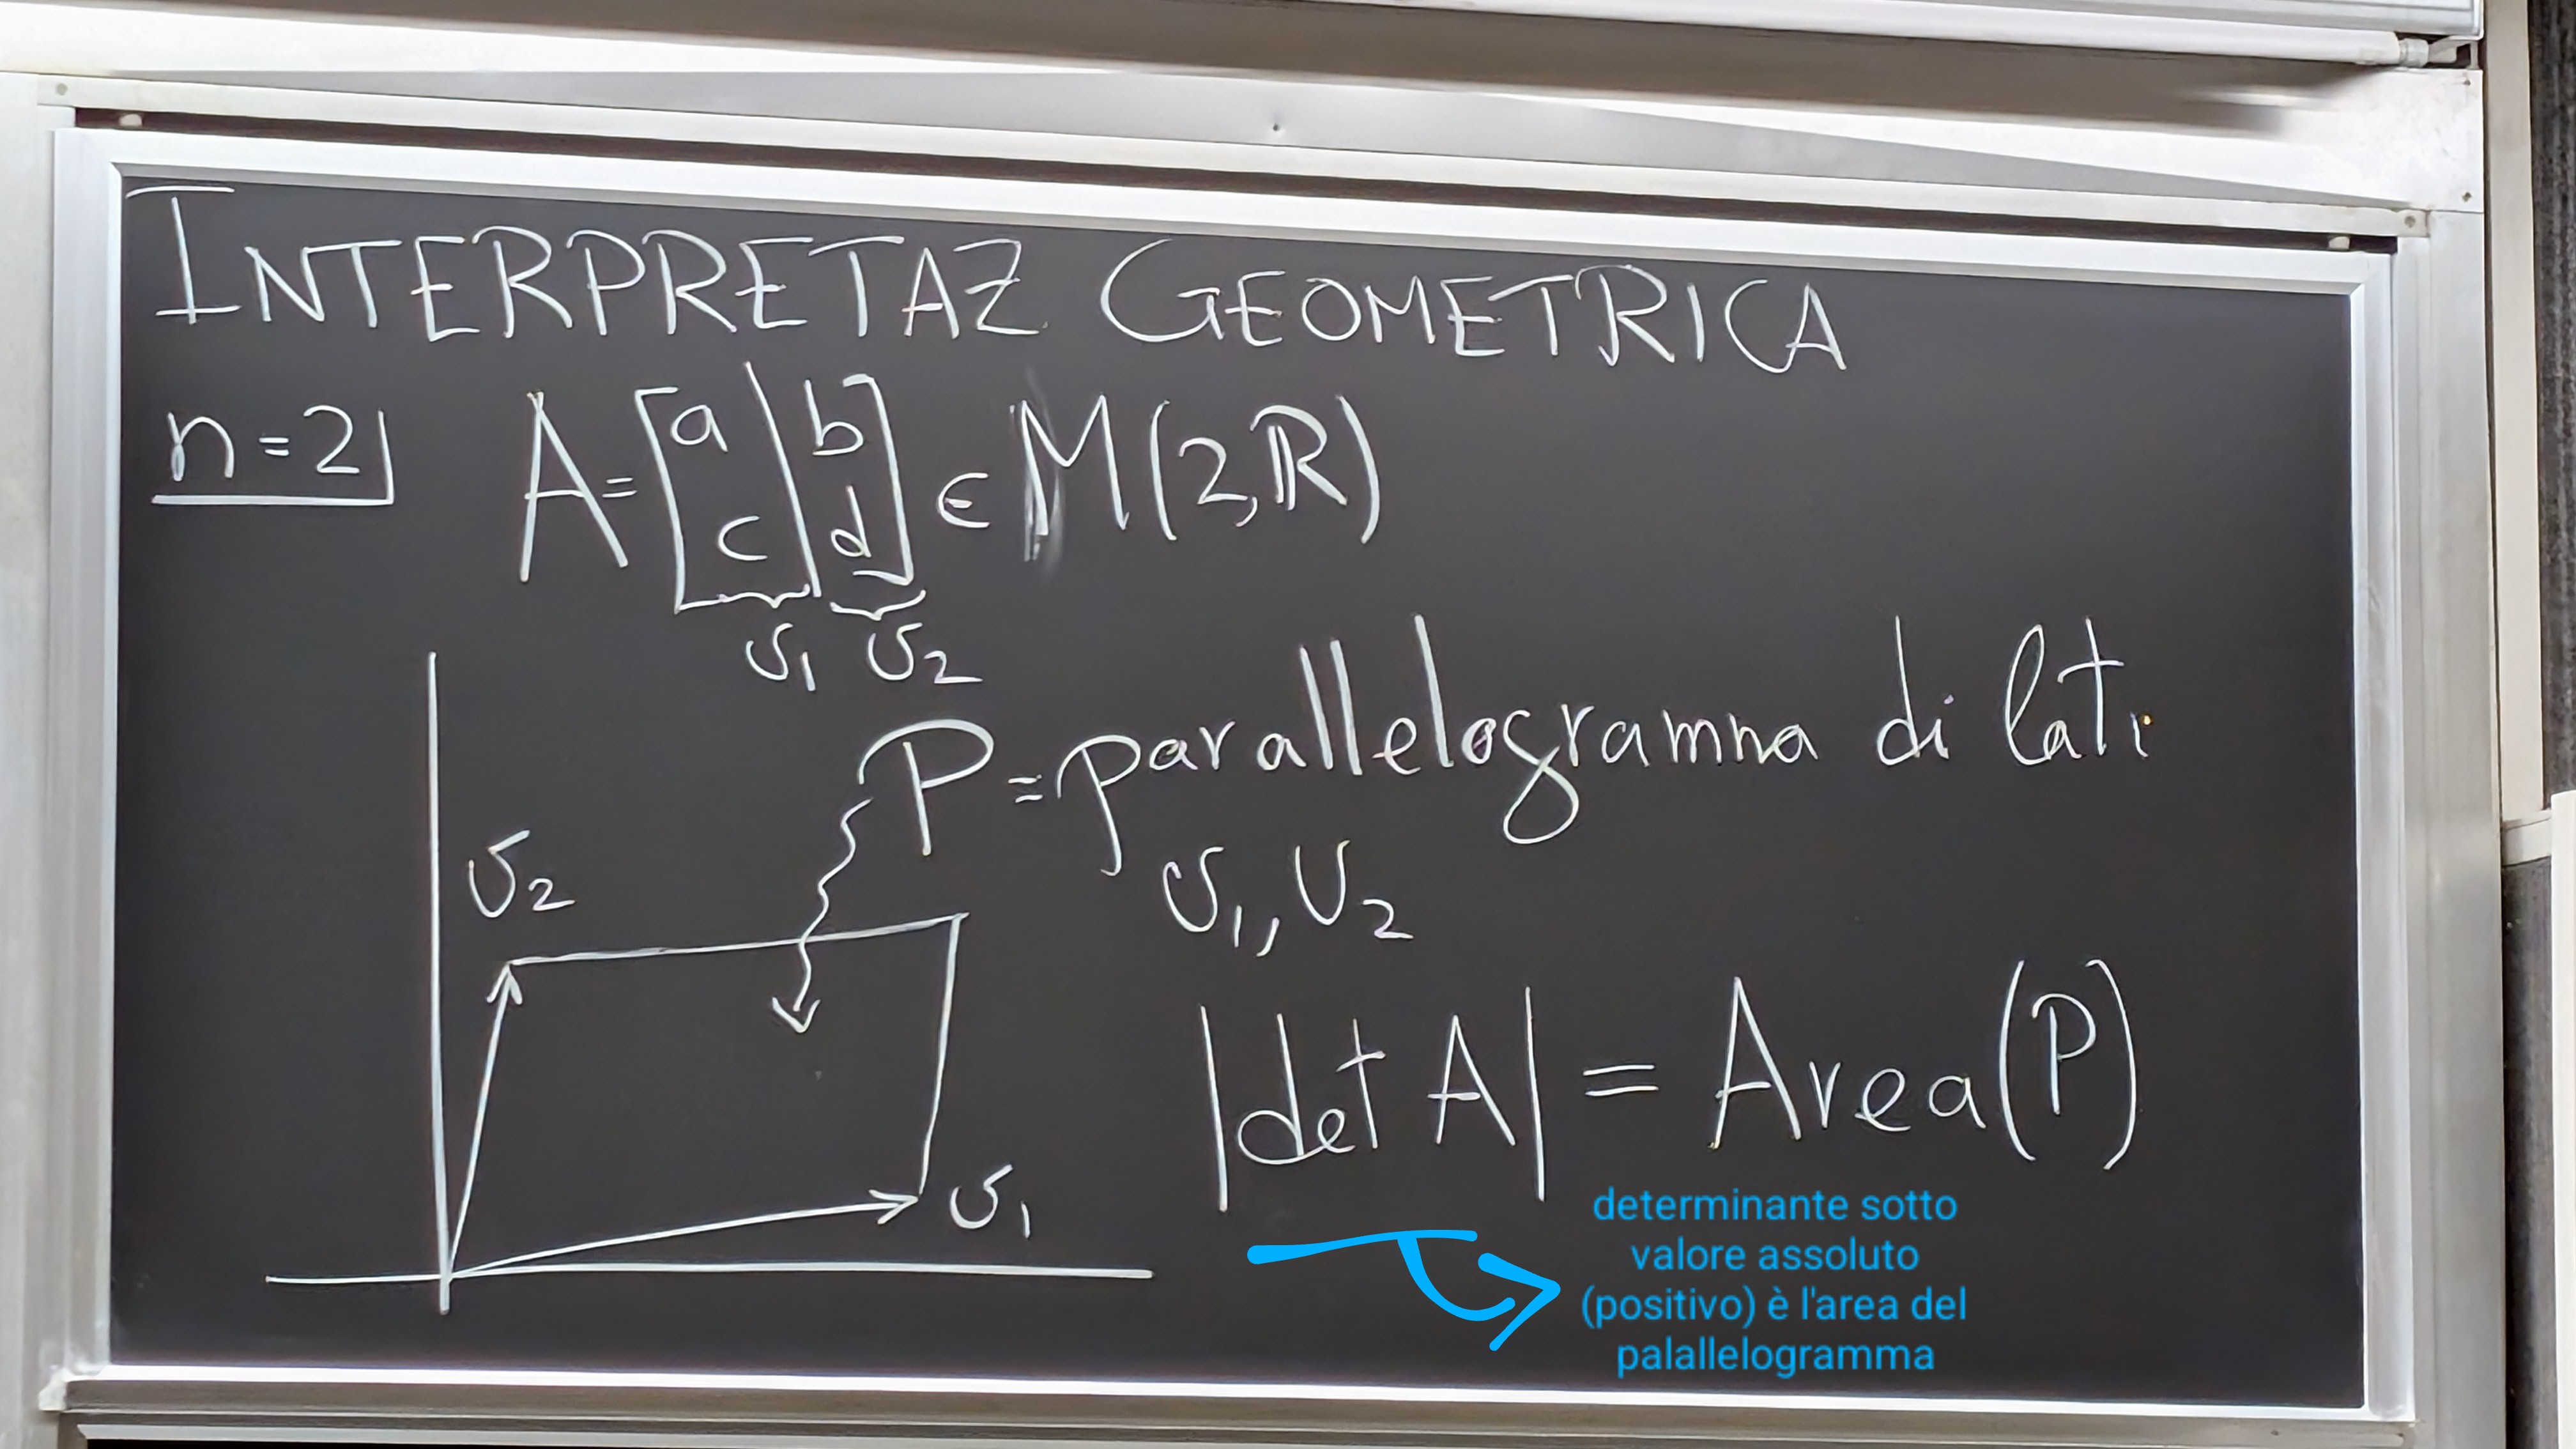 INTERPRETAZ. GEOMETRICA
n=2 A=[a | b
c | d] ∈ M(2,ℝ)
v₁ v₂
P=parallelogramma di lati
v₁, v₂
v₂
|det A| = Area(P)
v₁
determinante sotto
valore assoluto
(positivo) è l'area del
palallelogramma